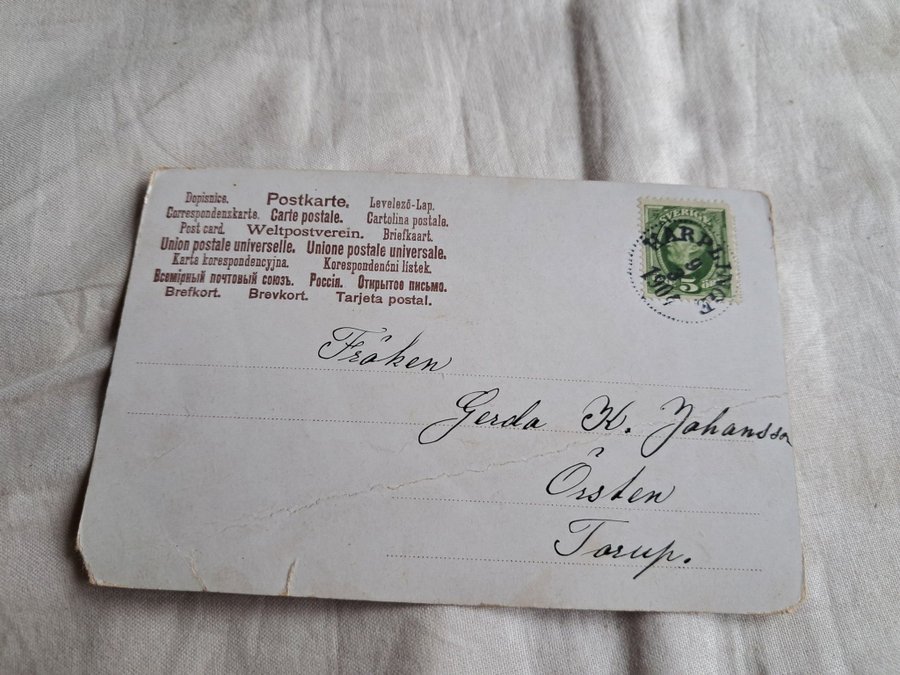 Dopisnice. Postkarte. Levelező-Lap.
Correspondenskarte. Carte postale. Cartolina postale.
Post card. Weltpostverein. Briefkaart.
Union postale universelle. Unione postale universale.
Karta korespondencyjna. Korespondenční lístek.
Всемірный почтовый союзъ. Россія. Открытое письмо.
Brefkort. Brevkort. Tarjeta postal.
SVERIGE
HARPLINGE
5
Fröken
Gerda K. Johansson
Örsten
Torup.